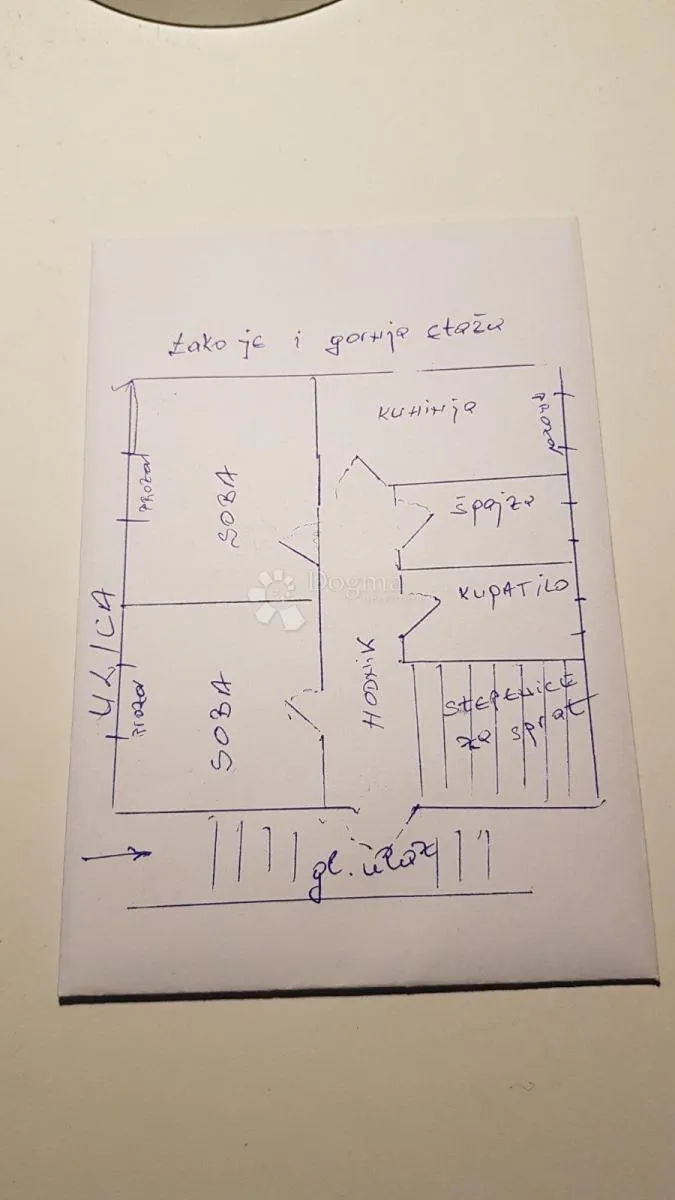 tako je i gornja etaža
KUHINJA
PROZOR
PROZOR
SOBA
špajza
Dogma
KUPATILO
ULICA
HODNIK
SOBA
PROZOR
STEPENICE
za sprat
gl. ulaz